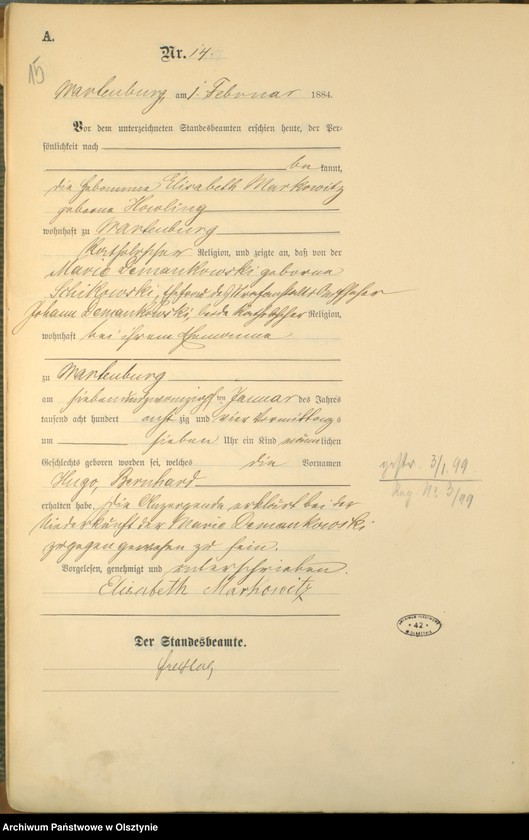 A.
Nr. 14.
15
Wartenburg, am 1. Februar 1884.
Vor dem unterzeichneten Standesbeamten erschien heute, der Per-
sönlichkeit nach
bekannt,
die Hebamme Elisabeth Markowitz
geborne
wohnhaft zu Wartenburg
katholischer Religion, und zeigte an, daß von der
Maria Demankowski geborne
Schikowski, Ehefrau des Strafanstalts Aufseher
Johann Demankowski, beide katholischer Religion,
wohnhaft bei ihrem Ehemanne
zu Wartenburg
am siebenundzwanzigsten Januar des Jahres
tausend acht hundert achtzig und vier Vormittags
um sieben Uhr ein Kind männlichen
Geschlechts geboren worden sei, welches die Vornamen
Hugo, Bernhard
erhalten habe. Die Anzeigende erklärt bei der
Niederkunft der Maria Demankowski
zugegen gewesen zu sein.
Vorgelesen, genehmigt und unterschrieben.
Elisabeth Markowitz
Der Standesbeamte.
gestr. 3/1. 99
Reg Nr. 3/99
42
Archiwum Państwowe w Olsztynie